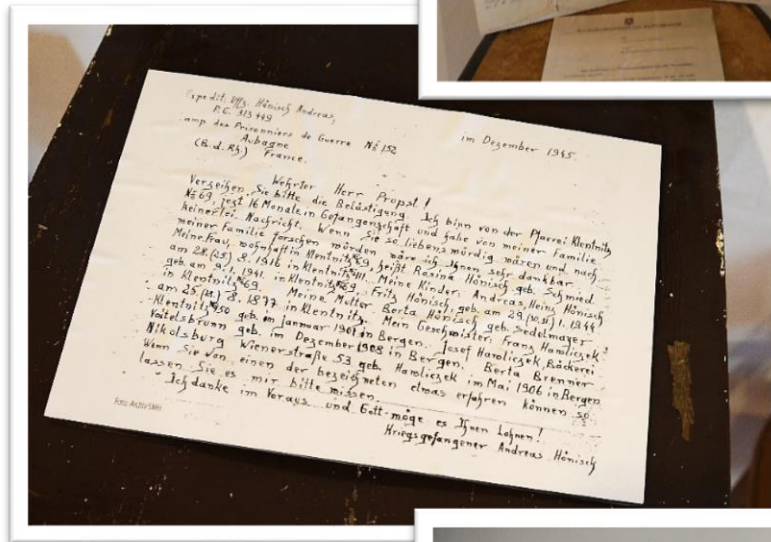 Expedit: Uffz. Hönisch Andreas,
P.C. 313449
amp des Prisonniers de Guerre № 152
Aubagne
(B.d.Rh.) France.
im Dezember 1945.
Wehrter Herr Propst!
Verzeihen Sie bitte die Belästigung. Ich binn von der Pfarrei Klentnitz
№ 69, jezt 16 Monate in Gefangenschaft und habe von meiner Familie
keinerlei Nachricht. Wenn Sie so liebenswürdig wären und nach
meiner Familie forschen würden wäre ich Ihnen sehr dankbar.
Meine Frau, wohnhaft in Klentnitz № 69, heißt Rosina Hönisch geb. Schmied
am 28. 8. 1916 in Klentnitz Meine Kinder: Andreas, Heinz Hönisch
geb. am 9. 1. 1941. in Klentnitz № 69. Fritz Hönisch, geb. am 29. 1. 1944
in Klentnitz № 69. Meine Mutter. Berta Hönisch geb. Sedelmayer
am 25. 8. 1877 in Klentnitz. Mein Geschwister: Franz Hawliczek
Klentnitz № 50 geb. im Januar 1901 in Bergen. Josef Hawliczek, Bäckerei
Voitelsbrunn geb. im Dezember 1908 in Bergen. Berta Brenner
Nikolsburg Wienerstraße 53 geb. Hawliczek im Mai 1906 in Bergen
Wenn Sie von einen der bezeichneten etwas erfahren können so
lassen Sie es mir bitte wissen.
Ich danke im Voraus und Gott möge es Ihnen Lohnen!
Kriegsgefangener Andreas Hönisch
Foto: Archiv SMH